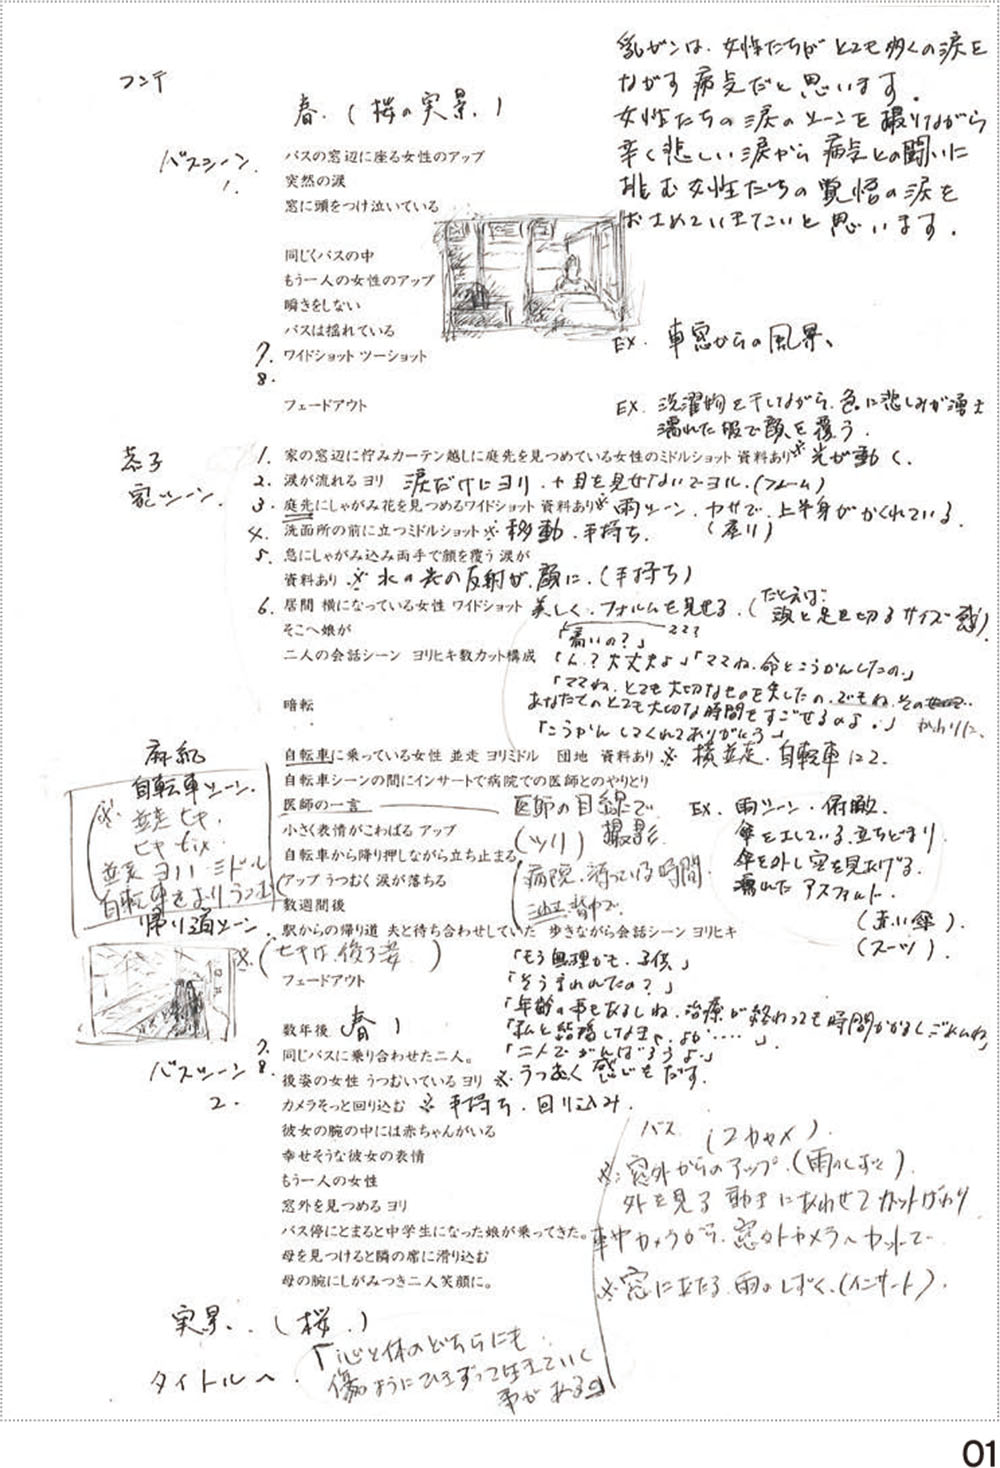 コンテ
春.(桜の実景.)
乳ガンは、女性たちがとても多くの涙を
ながす病気だと思います。
女性たちの涙のシーンを撮りながら
辛く悲しい涙から病気との闘いに
挑む女性たちの覚悟の涙を
おさめていきたいと思います.
バスシーン.
1.
バスの窓辺に座る女性のアップ
突然の涙
窓に頭をつけ泣いている
同じくバスの中
もう一人の女性のアップ
瞬きをしない
バスは揺れている
7. ワイドショット ツーショット
8.
フェードアウト
EX. 車窓からの風景、
EX. 洗濯物を干しながら、急に悲しみが湧き
濡れた服で顔を覆う.
恭子
家シーン.
1. 家の窓辺に佇みカーテン越しに庭先を見つめている女性のミドルショット 資料あり※光が動く.
2. 涙が流れる ヨリ 涙だけにヨリ.+ 目を見せないでヨル.(フレーム)
3. 庭先にしゃがみ花を見つめるワイドショット 資料あり※雨シーン. カサで、上半身がかくれている.
4. 洗面所の前に立つミドルショット※移動.手持ち.
5. 急にしゃがみ込み両手で顔を覆う 涙が
資料あり ※水の光の反射が、顔に.(手持ち)
6. 居間 横になっている女性 ワイドショット 美しく.フォルムを見せる.(たとえば:頭と足を切るサイズ感).
そこへ娘が 「痛いの?」 ???
二人の会話シーン ヨリヒキ数カット構成 「ん?大丈夫よ」「ママね.命とこうかんしたの.」
「ママね、とても大切なものを失したの.でもね、その
かわりに、
あなたとのとても大切な時間をすごせるのよ.」
「こうかんしてくれてありがとう」
暗転
麻紀
自転車シーン.
自転車に乗っている女性 並走 ヨリミドル 団地 資料あり ※ 横並走.自転車に2.
自転車シーンの間にインサートで病院での医師とのやりとり
医師の一言 医師の目線で
(ツリ) 撮影
小さく表情がこわばる アップ
自転車から降り押しながら立ち止まる
アップ うつむく 涙が落ちる
数週間後
※ 並走 ヒキ.
ヒキ fix.
並走 ヨリ ミドル
自転車をおりうつむく
病院.滞っている時間
EX. 雨シーン.俯瞰.
傘をさしている.立ちどまり
傘を外し空を見あげる.
濡れたアスファルト.
(赤い傘).
(スーツ).
帰り道シーン.
駅からの帰り道 夫と待ち合わせしていた 歩きながら会話シーン ヨリヒキ
※(ヒキは、後ろ姿)
フェードアウト
「もう無理かも.子供.」
「そう言われたの?」
「年齢の事もあるしね.治療が終わっても時間かかるしごめんね
「私と結婚しなきゃ.よか……」.
「二人でがんばろうよ.」
数年後 春 )
7.
同じバスに乗り合わせた二人。
バスシーン 8.
2.
後姿の女性 うつむいている ヨリ ※.うつむく感じをだす.
カメラそっと回り込む ※手持ち.回り込み.
彼女の腕の中には赤ちゃんがいる
幸せそうな彼女の表情
もう一人の女性
窓外を見つめる ヨリ
バス停にとまると中学生になった娘が乗ってきた。
母を見つけると隣の席に滑り込む
母の腕にしがみつき二人笑顔に。
バス (2カメ).
※:窓外からのアップ.(雨のしずく).
外を見る動きにあわせてカットがわり
車中カメラから.窓外カメラへカットで
※窓に当たる.雨のしずく.(インサート).
実景.(桜.)
タイトルへ.
「心と体のどちらにも
傷のようにひきずって生きていく
事がある」
01